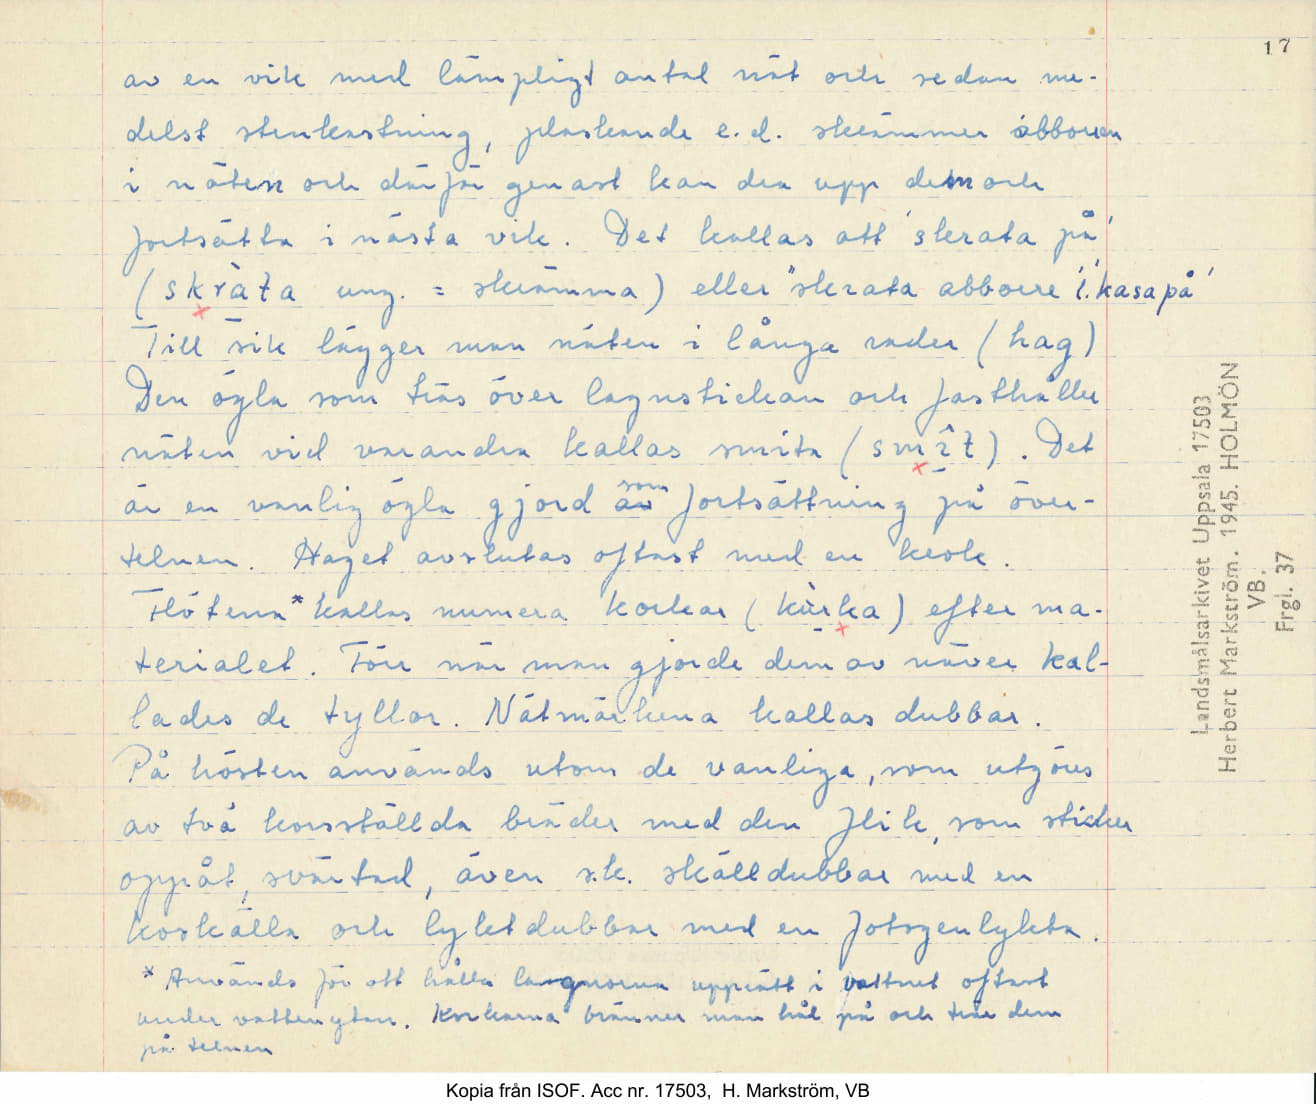 17
av en vik med lämpligt antal nät och sedan me-
delst stenkastning, plaskande e.d. skrämmer abborren
i näten och därpå genast kan dra upp dem och
fortsätta i nästa vik. Det kallas att 'skrata på'
(skràta ung. = skrämma) eller "skrata abborre"
l. 'kasa på'
Till sik lägger man näten i långa rader (hag)
Den ögla som träs över lagnstickan och fasthåller
näten vid varandra kallas smita (smît). Det
är en vanlig ögla gjord som fortsättning på över-
telnen. Haget avslutas oftast med en krok.
Flötena* kallas numera korkar (kùrka) efter ma-
terialet. Förr när man gjorde dem av näver kal-
lades de tyllor. Nätmärkena kallas dubbar.
På hösten används utom de vanliga, som utgöres
av två korsställda bräder med den flik, som sticker
oppåt, svärtad, även s.k. skälldubbar med en
koskälla och lyktdubbar med en fotogenlykta.
* Används för att hålla lagnorna upprätt i vattnet oftast
under vattenytan. Korkarna bränner man hål på och trär dem
på telnen
Landsmålsarkivet Uppsala 17503
Herbert Markström. 1945. HOLMÖN
VB.
Frgl. 37
Kopia från ISOF. Acc nr. 17503, H. Markström, VB